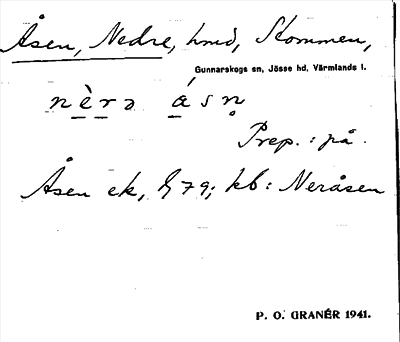 Åsen, Nedre, hmd, Stommen,
Gunnarskogs sn, Jösse hd, Värmlands l.
nèrə ásn̥
Prep.: på.
Åsen ek, G79; kb: Neråsen
P. O. GRANÉR 1941.